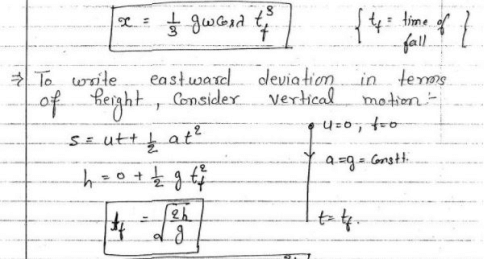 x = 1/3 gω Cosλ t_f^3 { t_f = time of fall }
⇒ To write eastward deviation in terms
of height, Consider vertical motion :-
s = ut + 1/2 at^2
u=0, t=0
a=g= Constt.
h = 0 + 1/2 g t_f^2
t_f = √(2h/g)
t= t_f.